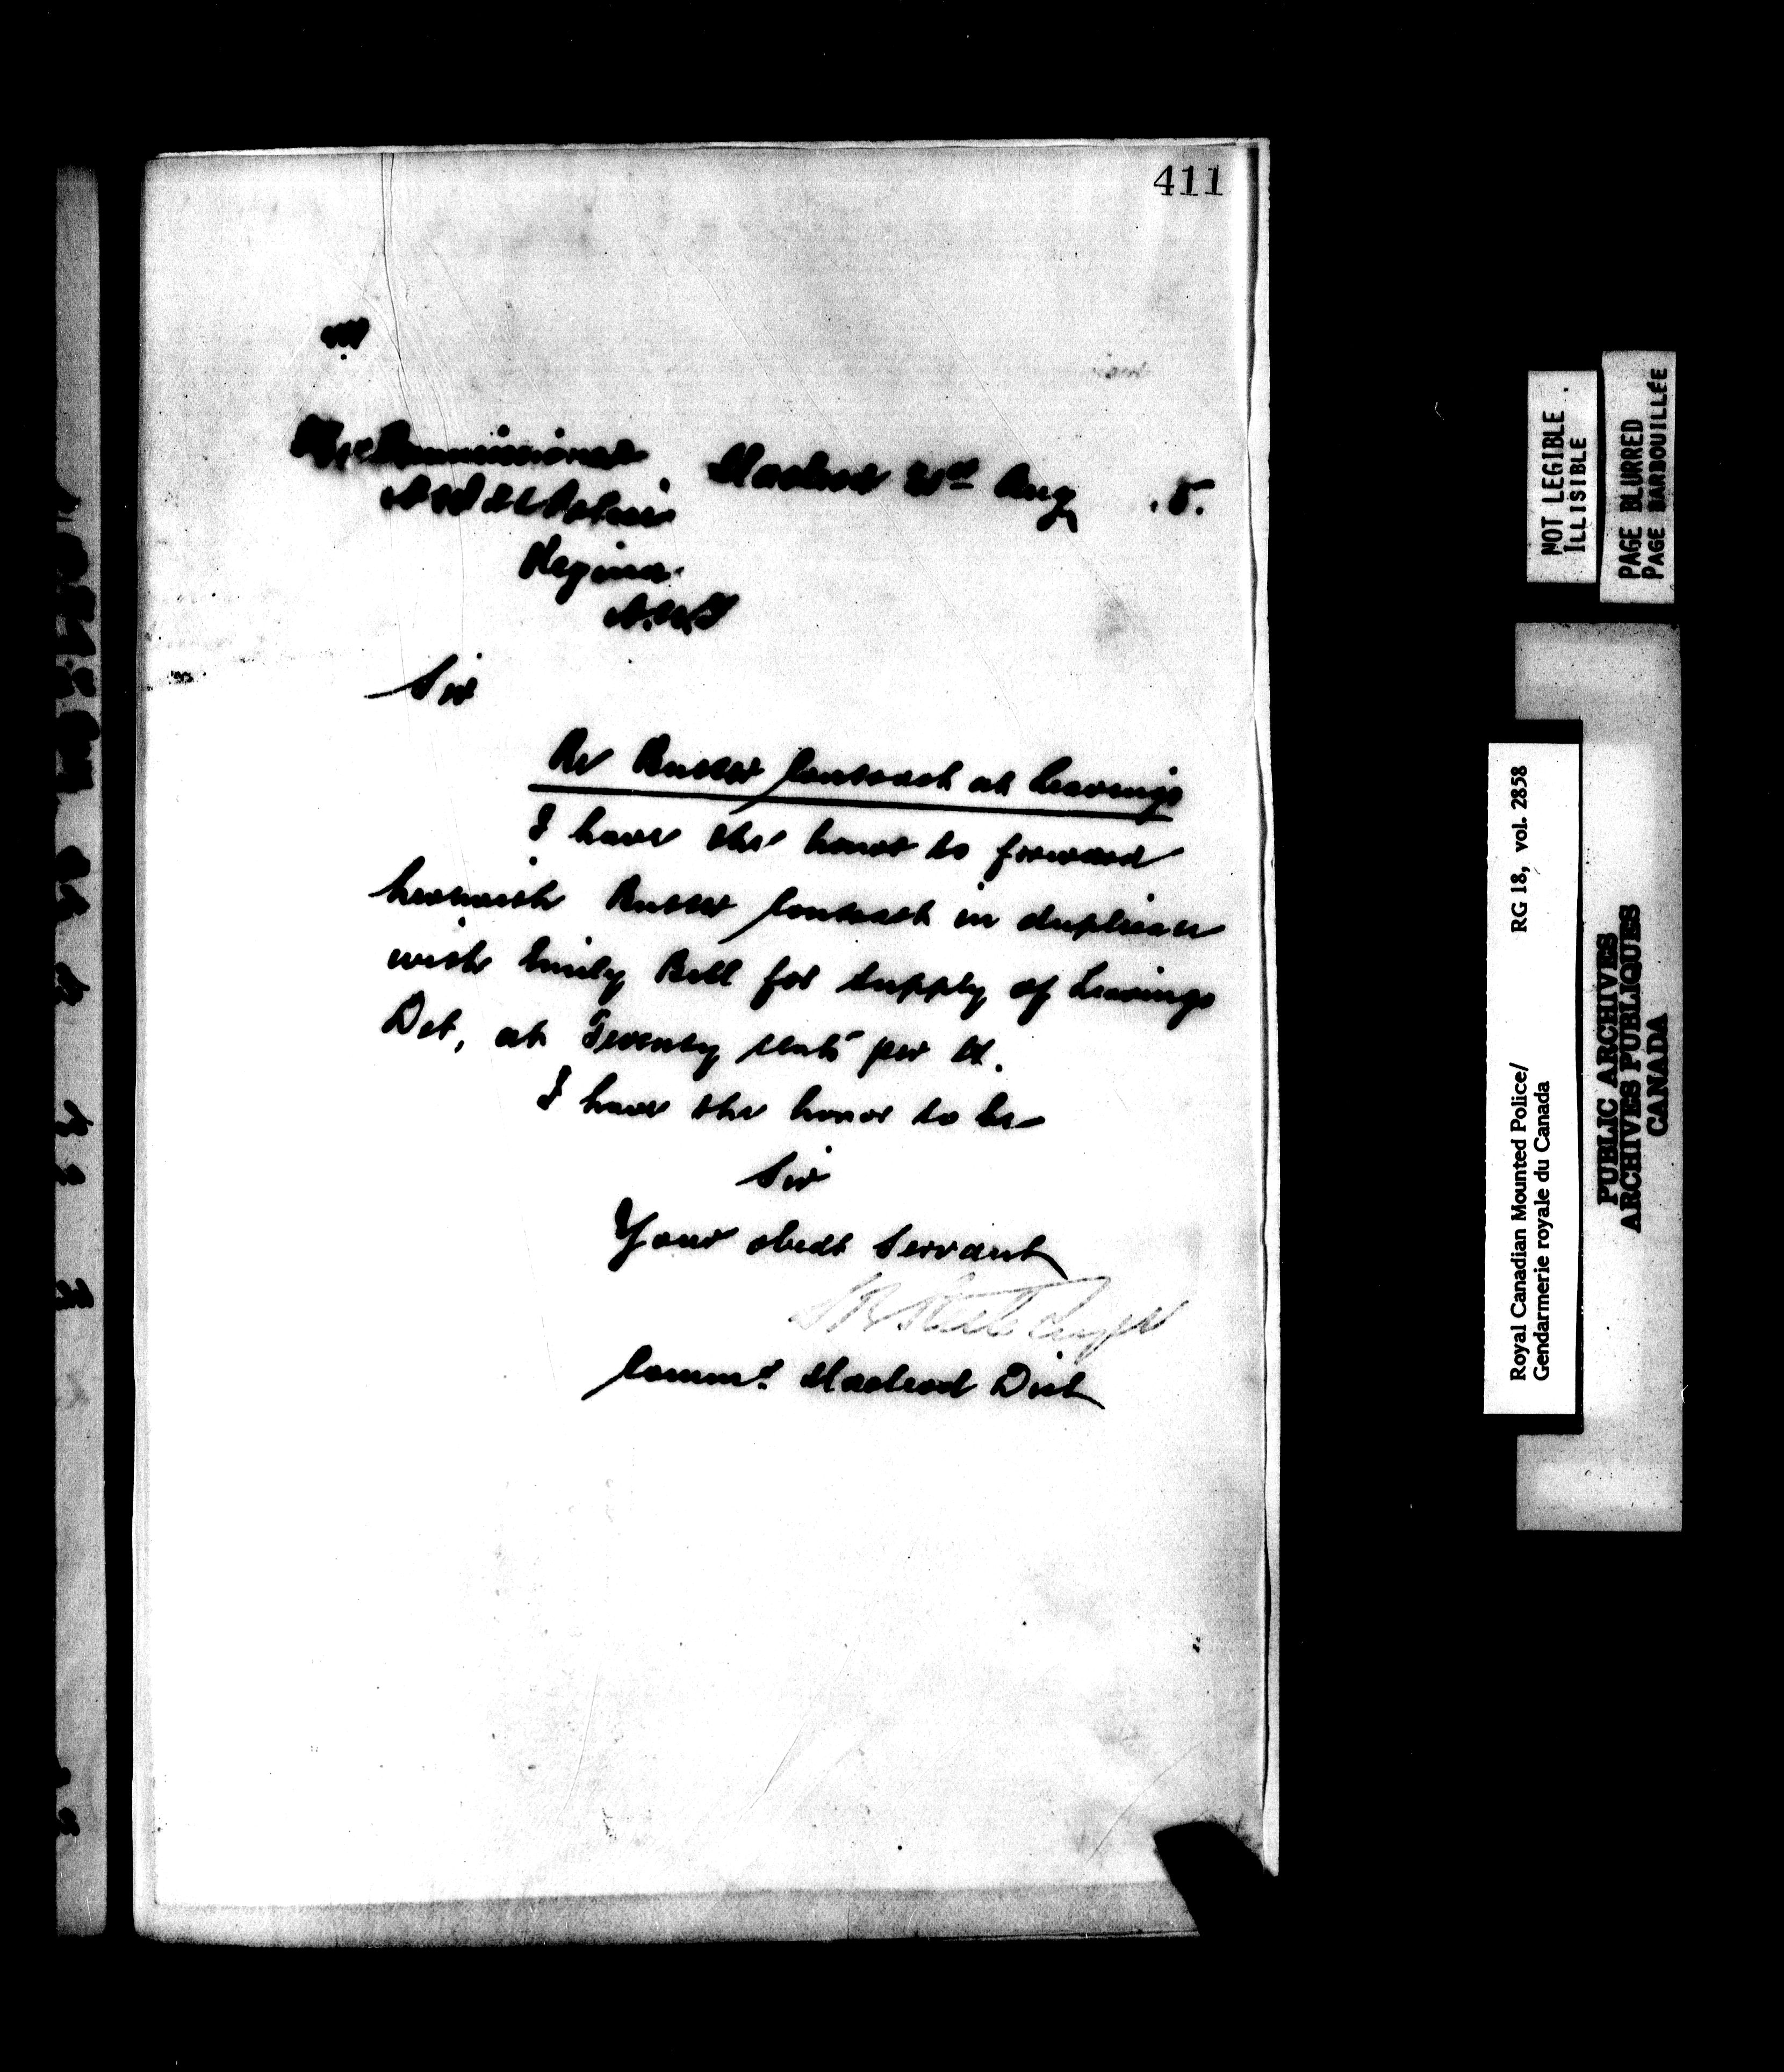 411
The Commissioner
N W M Police
Regina
N.W.T
Macleod Aug 5.
Sir
Re Butter Contract at Leavings
I have the honor to forward
herewith Butter Contract in duplicate
with Emily Bell for supply of Leavings
Det, at Twenty cents per lb.
I have the honor to be
Sir
Your obedt Servant
S B Steele Supt
Commg. Macleod Dist
NOT LEGIBLE
ILLISIBLE
PAGE BLURRED
PAGE BARBOUILLÉE
Royal Canadian Mounted Police/ RG 18, vol. 2858
Gendarmerie royale du Canada
PUBLIC ARCHIVES
ARCHIVES PUBLIQUES
CANADA